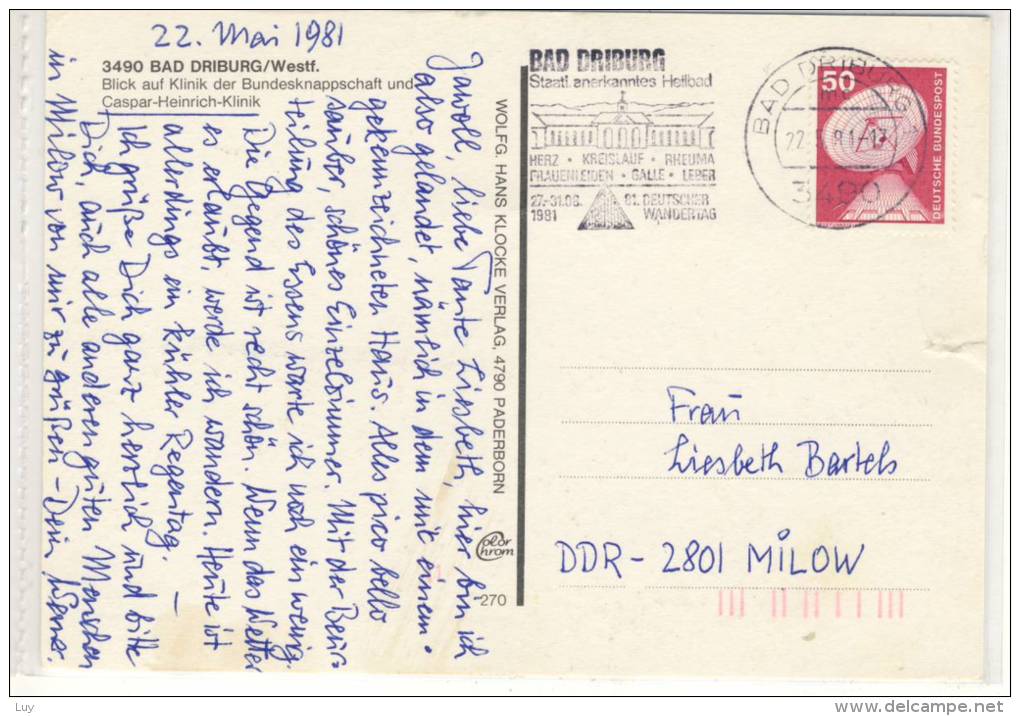 22. Mai 1981
3490 BAD DRIBURG/Westf.
Blick auf Klinik der Bundesknappschaft und
Caspar-Heinrich-Klinik
Jawoll, liebe Tante Liesbeth, hier bin ich
also gelandet, nämlich in dem mit einem .
gekennzeichneten Haus. Alles pico bello
sauber, schönes Einzelzimmer. Mit der Beur-
teilung des Essens warte ich noch ein wenig.
Die Gegend ist recht schön. Wenn das Wetter
es erlaubt, werde ich wandern. Heute ist
allerdings ein kühler Regentag. –
Ich grüße Dich ganz herzlich und bitte
Dich, auch alle anderen guten Menschen
in Milow von mir zu grüßen – Dein Werner.
WOLFG. HANS KLOCKE VERLAG, 4790 PADERBORN
Color
Chrom
270
BAD DRIBURG
Staatl. anerkanntes Heilbad
HERZ • KREISLAUF • RHEUMA
FRAUENLEIDEN • GALLE • LEBER
27.-31.08. 81. DEUTSCHER
1981 WANDERTAG
BAD DRIBURG
3490
50
DEUTSCHE BUNDESPOST
Frau
Liesbeth Bartels
DDR - 2801 MILOW
Luy
www.delcampe.net